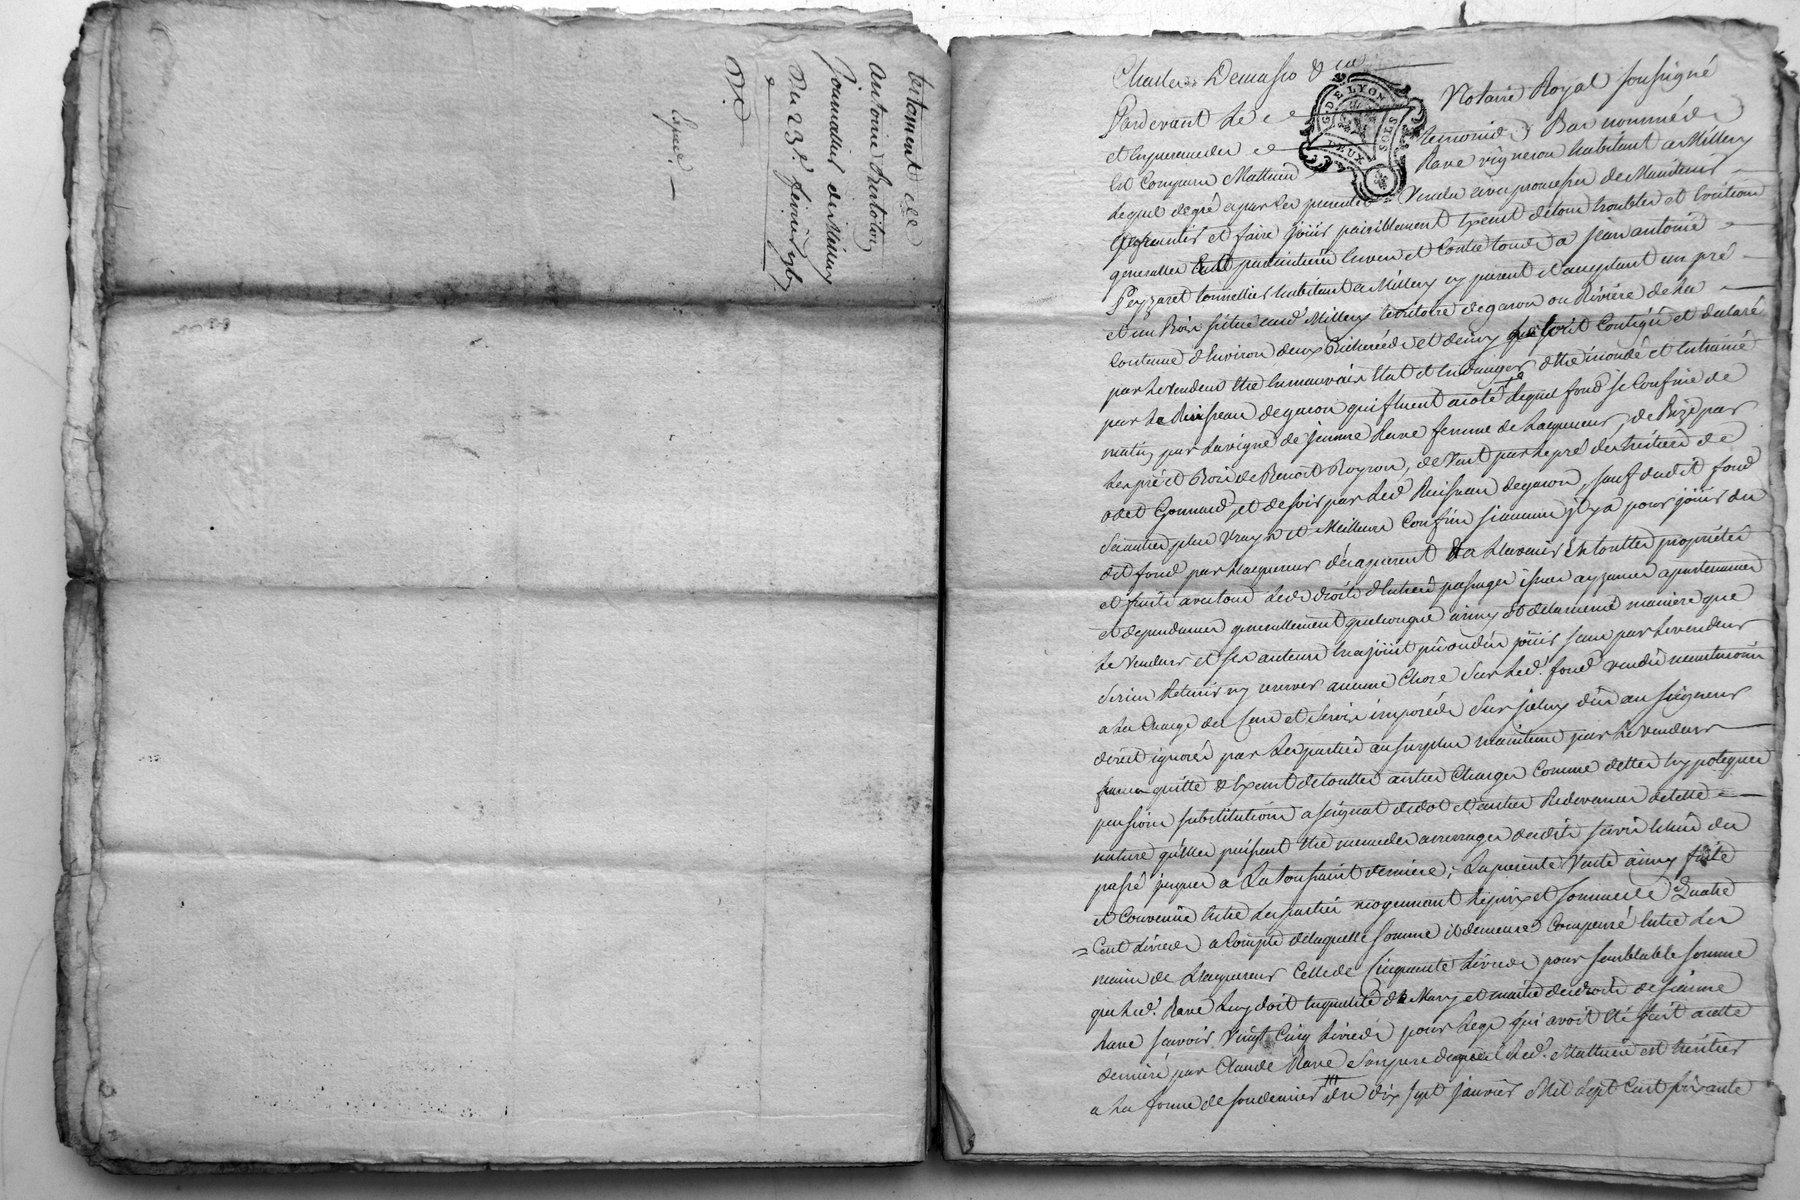 testament de
antoine
journallier de Millery
du 23e. fevrier
Expedié
G. DE LYON
DEUX SOLS
Pardevant Le Notaire Royal soussigné
et En presence des temoins Bas nommés
Est Comparu Mathieu Rave vigneron habitant a Millery
Lequel de gré a par Les presentes Vendu avec promesse de Maintenir
Garentir et faire joüir paisiblement Exent de tous troubles et Evictions
generalles Et particulieres Envers et Contre tous a jean antoine
Peyzaret tonnellier habitant a Millery cy present et acceptant un pré
et un Bois situé aud. Millery territoire de garon ou Riviere de La
Contenue d'Environ deux Bicherées et demy Contigu et declaré
par Le vendeur Etre En mauvais Etat et En danger d'Etre inondé et Entrainé
par Le Ruisseau de garon qui fluent a coté, Lequel fond se Confine de
matin par La vigne de jeanne Rave femme de Lacquereur, de Bize par
Les pré et Bois de Benoit Royron, de Vent par Le pré des heritiers de
Gonnard, et de soir par Led. Ruisseau de garon, sauf dudit fond
ses autres plus vrays et Meilleurs Confins si aucuns il y a pour joüir du
dit fond par Lacquereur dés a present Et a Lavenir En touttes proprietés
et fruits avec tous Ses droits d'Entrées passages issues ayzances apartenances
et dependances generallement quelconques ainsy Et de la meme maniere que
Le Vendeur et ses auteurs En a joüit pû ou dû joüir sans par Le vendeur
Se rien Retenir ny reserver aucune Chose Sur Led. fond vendu neantmoins
a La Charge des Cens et Servis imposés Sur jceluy dûs au seigneur
direct ignoré par Les parties au surplus maintenu par Le vendeur
franc quitte & Exent de touttes autres Charges Comme dettes hypoteques
pension substitution assignat de dot et autres Redevances de telle
nature qu'elles puissent Etre meme des arrerages desdits servis Echus du
passé jusques a La toussaint derniere; La presente Vente ainsy faite
et Convenüe Entre Les parties moyennant Le prix et somme de Quatre
Cent Livres a Compte de laquelle somme il demeure Compensé Entre Les
mains de Lacquereur Celle de Cinquante Livres pour semblable somme
que Led. Rave Luy doit En qualité de Mary et maitre des droits de jeanne
Rave sçavoir Vingt Cinq Livres pour Legs qui avoit Eté fait a cette
derniere par Claude Rave son pere duquel Led. Mathieu est heritier
a La forme de son dernier du dix sept janvier Mil sept Cent soixante